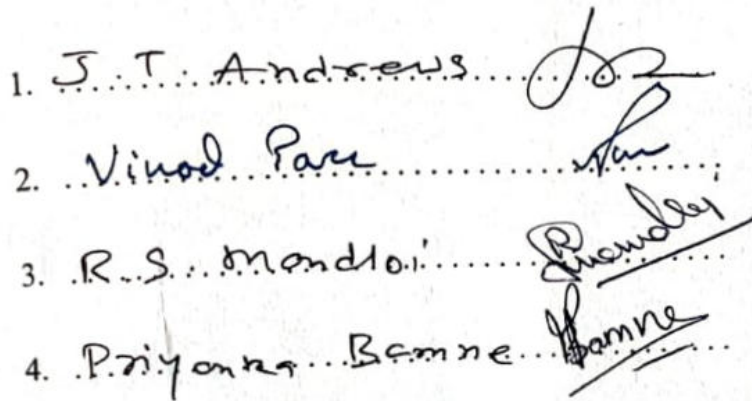 1. J. T. Andrews
2. Vinod Pare
3. R. S. Mandloi
4. Priyanka Bamne Bamne